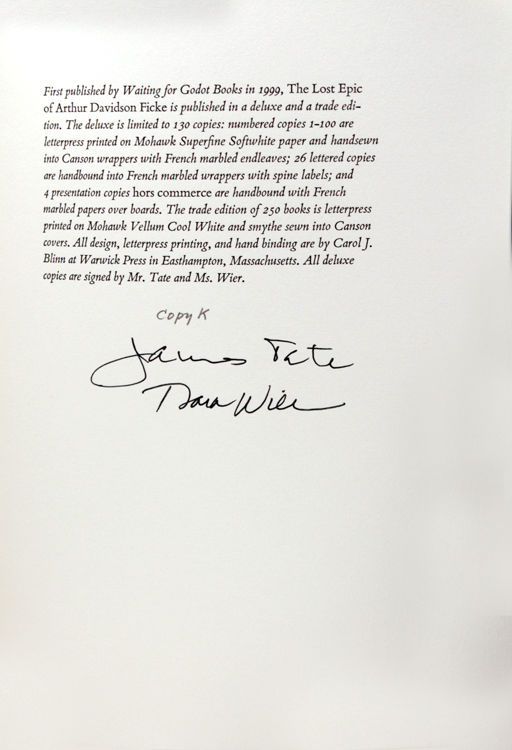 First published by Waiting for Godot Books in 1999, The Lost Epic
of Arthur Davidson Ficke is published in a deluxe and a trade edi-
tion. The deluxe is limited to 130 copies: numbered copies 1-100 are
letterpress printed on Mohawk Superfine Softwhite paper and handsewn
into Canson wrappers with French marbled endleaves; 26 lettered copies
are handbound into French marbled wrappers with spine labels; and
4 presentation copies hors commerce are handbound with French
marbled papers over boards. The trade edition of 250 books is letterpress
printed on Mohawk Vellum Cool White and smythe sewn into Canson
covers. All design, letterpress printing, and hand binding are by Carol J.
Blinn at Warwick Press in Easthampton, Massachusetts. All deluxe
copies are signed by Mr. Tate and Ms. Wier.
Copy K
James Tate
Dara Wier